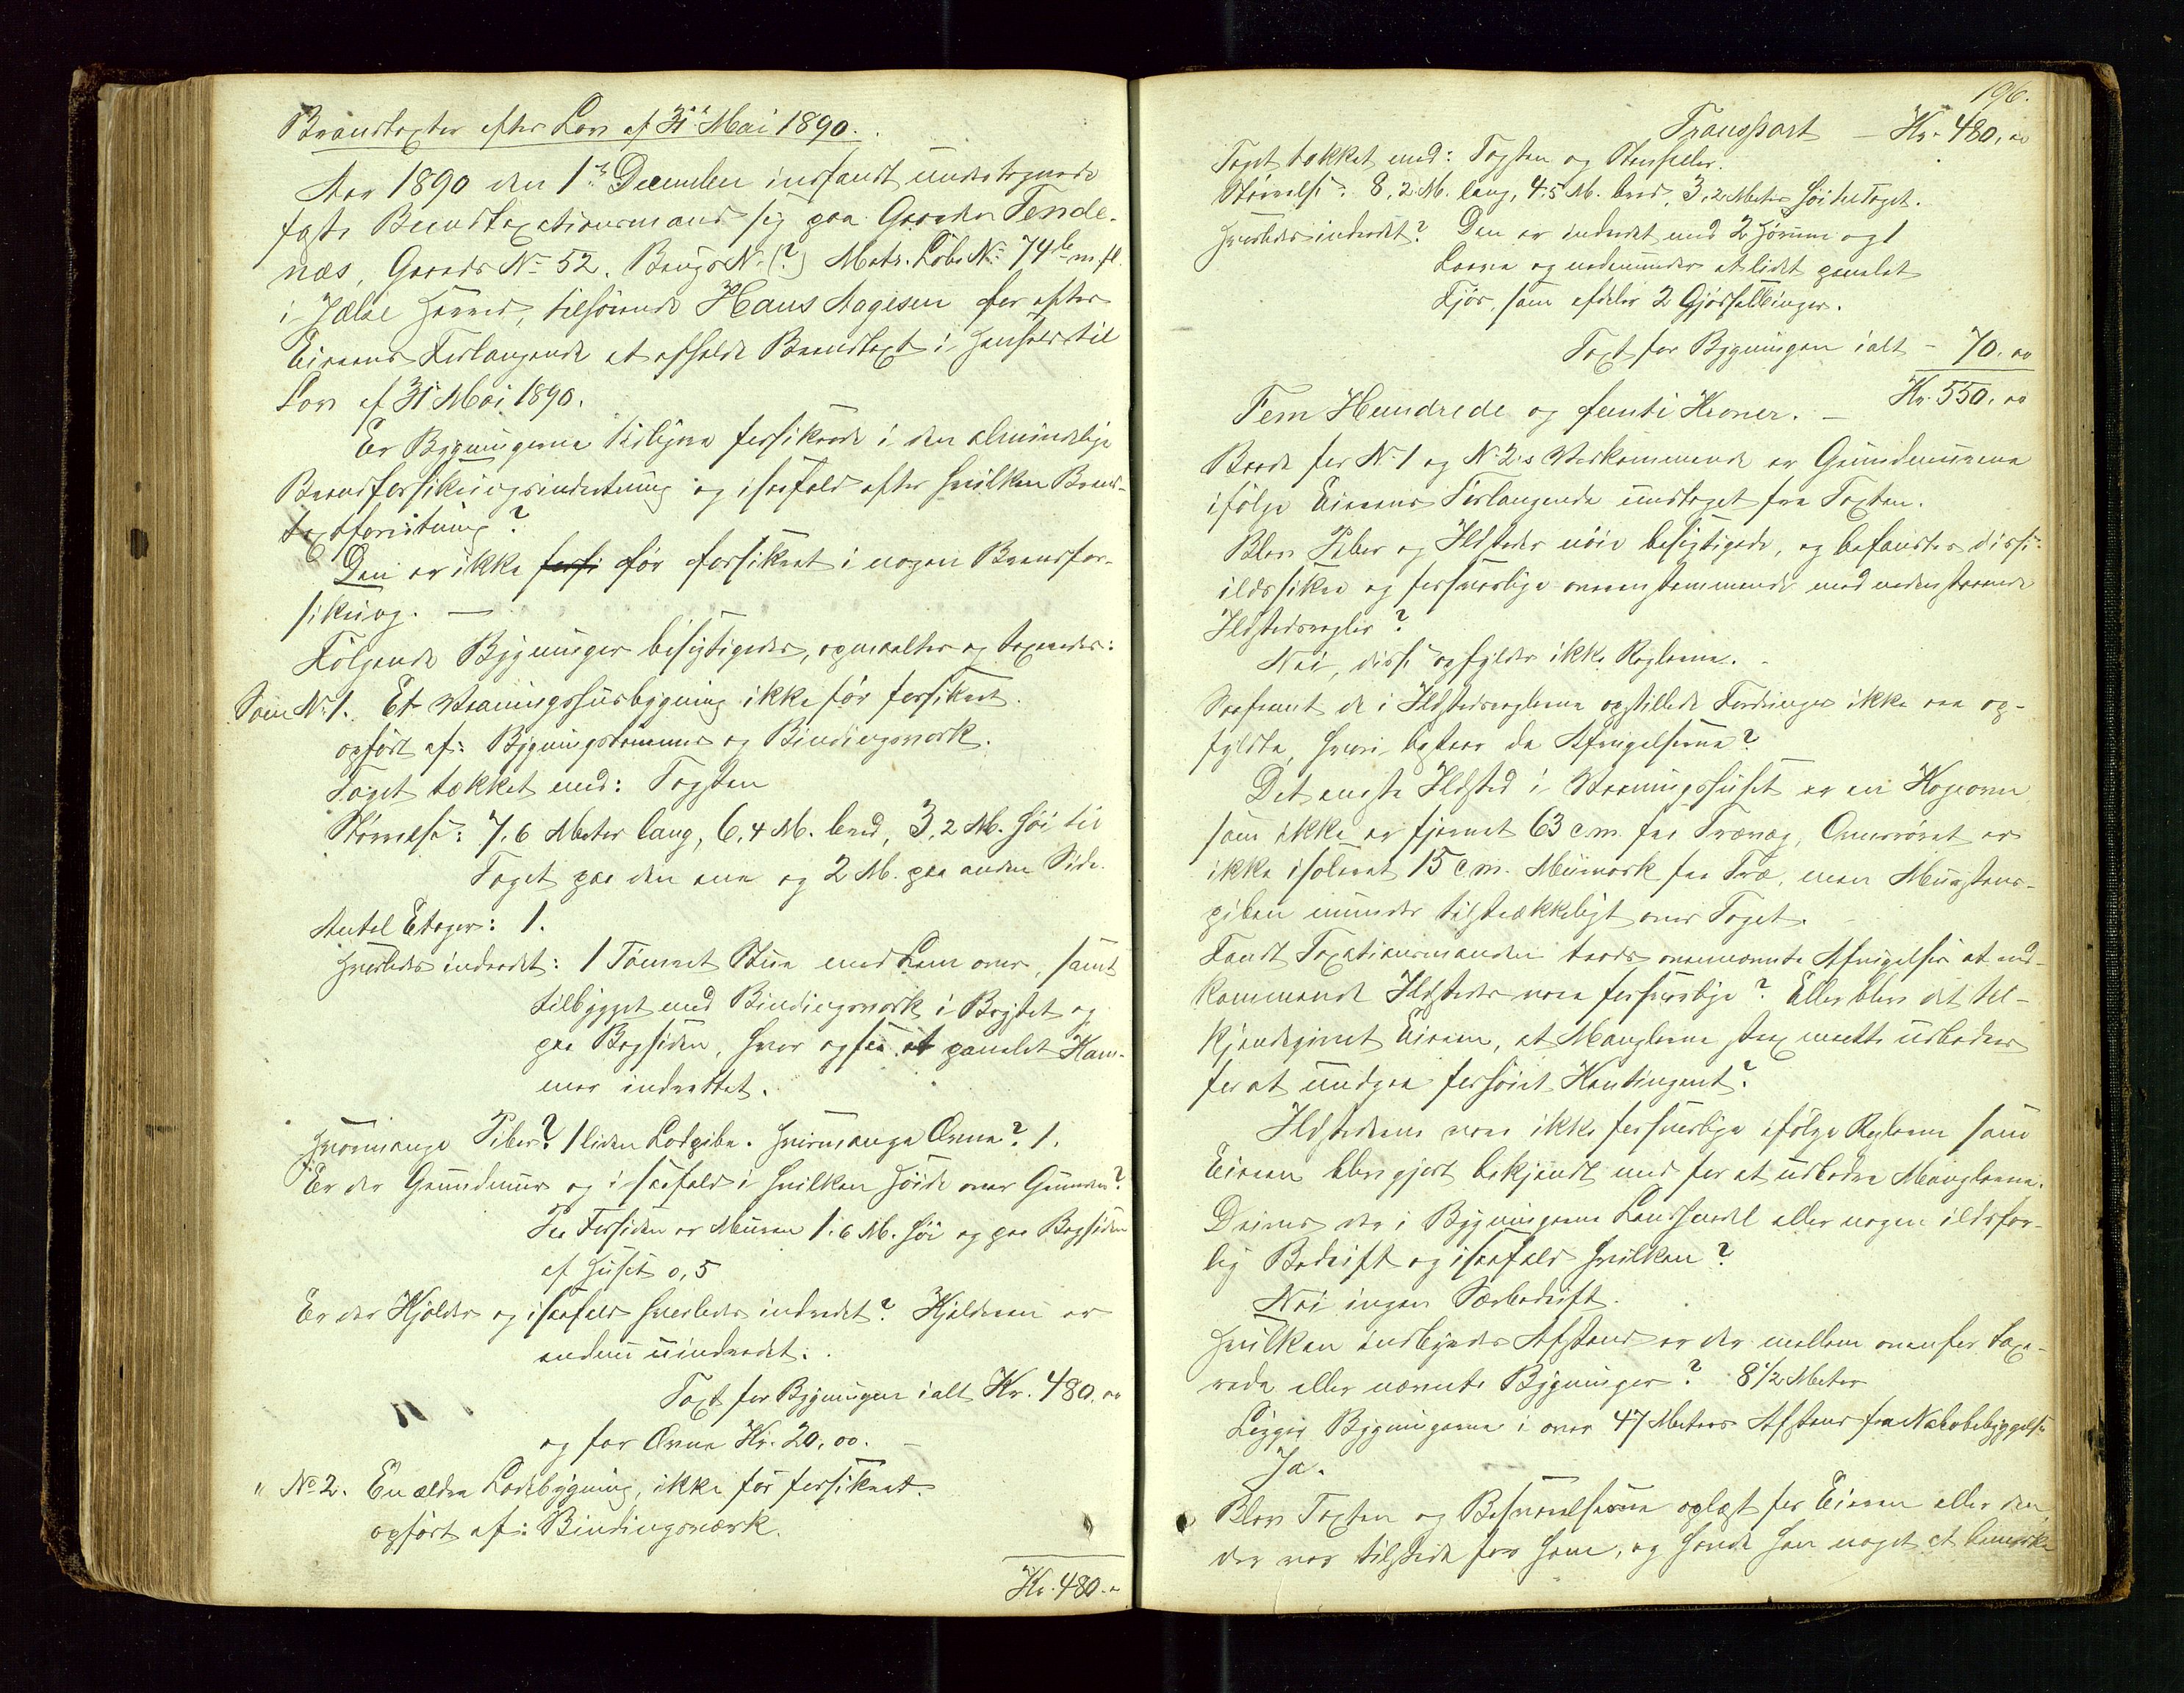 Brandtaxter efter Lov af 31te Mai 1890.
Aar 1890 den 1ste December indfandt undertegnede
faste Brandtaxationsmand sig paa Gaarden Tende-
næs, Gaards No 52. Brugs No (?) Matr. Løbe No 74 b m. fl.
i Jælse Herred, tilhørende Hans Aagesen for efter
Eierens Forlangende at afholde Brandtaxt i Henhold til
Lov af 31te Mai 1890.
Er Bygningerne tidligere forsikrede i den almindelige
Brandforsikringsindretning og isaafald efter hvilken Brand-
taxtforretning?
Den er ikke forsi før forsikret i nogen Brandfor-
sikring. —
Følgende Bygninger besigtigedes, opmaaltes og taxeredes:
Som No 1. Et Vaaningshusbygning ikke før forsikret.
opført af: Bygningstømmer og Bindingsverk.
Taget tækket med: Tagsten
Størrelse: 7,6 Meter lang, 6,4 M. bred, 3,2 M. høi til
Taget paa den ene og 2 M. paa anden Side.
Antal Etager: 1.
Hvorledes indredet: 1 Tømret Stue med Lem over, samt
tilbygget med Bindingsverk i Brystet og
paa Bagsiden, hvor ogsaa et panelet Kam-
mer indrettet.
Hvormange Piber? 1 liden Lodpibe. Hvormange Ovne? 1.
Er der Grundmur og i saafald i hvilken Høide over Grunden?
Paa Forsiden er Muren 1,6 M. høi og paa Bagsiden
af Huset 0,5
Er der Kjelder og isaafald hvorledes indredet? Kjelderen er
endnu uindredet.
Taxt for Bygningen ialt Kr. 480,00
og for Ovne Kr. 20,00. —
" No 2. En ældre Ladebygning, ikke før forsikret.
opført af: Bindingsværk.
Kr. 480.00
196.
Transport — Kr. 480,00
Taget tækket med: Tagsten og Stenheller.
Størrelse: 8,2 M. lang, 4,5 M. bred, 3,2 Meter høi til Taget.
Hvorledes indredet? Den er indredet med 2 Hørum og 1
Laave og nedenunder et lidet panelet
Fjøs, som afdeler 2 Gjødselbinger.
Taxt for Bygningen ialt - 70,00
Kr. 550,00
Fem Hundrede og femti Kroner. —
Baade for No 1 og No 2's Vedkommende er Grundmurene
ifølge Eierens Forlangende undtaget fra Taxten.
Blev Piber og Ildsteder nøie besigtigede, og befandtes disse
ildssikre og forsvarlige overensstemmende med nedenstaaende
Ildstedsregler?
Nei, disse opfylder ikke Reglerne. -
Saafremt de i Ildstedsreglerne opstillede Fordringer ikke ere op-
fyldte, hvori bestaar da Afvigelserne?
Det eneste Ildsted i Vaaningshuset er en Kogeovn
som ikke er fjernet 63 c.m. fra Trævæg, Ovnsrøret er
ikke isoleret 15 c.m. Murverk fra Træ, men Murstens-
piben munder tilstrækkeligt over Taget.
Fandt Taxationsmanden trods ovennævnte Afvigelser at ved-
kommende Ildsteder være forsvarlige? Eller blev det til-
kjendegivet Eieren, at Manglerne strax maatte udbedres
for at undgaa forhøiet Kontingent?
Ildstedene vare ikke forsvarlige ifølge Reglerne som
Eieren blev gjort bekjendt med for at udbedre Manglerne.
Drives der i Bygningerne Landhandel eller nogen ildsfar-
lig Bedrift og isaafald hvilken?
Nei ingen Særbedrift.
Hvilken indbyrdes Afstand er der mellem ovenfor taxe-
rede eller nævnte Bygninger? 8 1/2 Meter
Ligger Bygningerne i over 47 Meters Afstand fra Nabobebyggelse
Ja.
Blev Taxten og Besvarelserne oplæst for Eieren eller den,
der var tilstede for ham, og havde han noget at bemærke